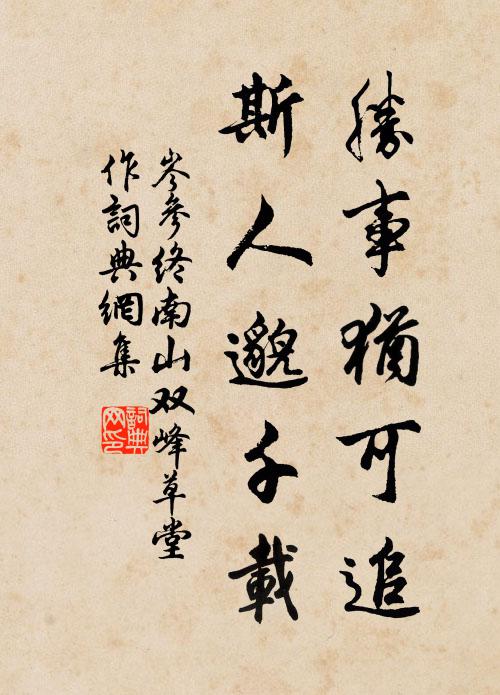 勝事猶可追
斯人邈千載
岑參終南山双峰草堂
作詞典網集
詞典網印